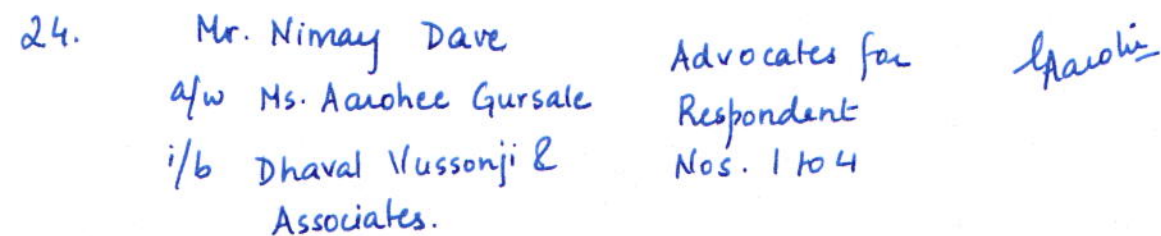 24. Mr. Nimay Dave
a/w Ms. Aarohee Gursale
i/b Dhaval Vussonji &
Associates.
Advocates for
Respondent
Nos. 1 to 4